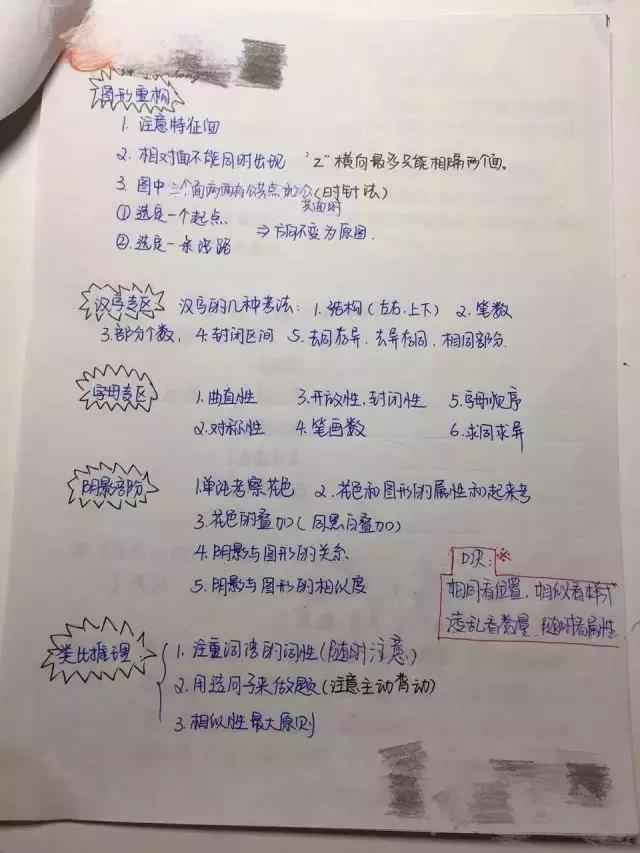 图形重构
1. 注意特征面
2. 相对面不能同时出现 "Z"横向最多只能相隔两个面。
3. 图中三个面两两有公共点(时针法)
共面时
① 选定一个起点
② 选定一条线路 ⇒ 方向不变为原图.
汉字专区 汉字的几种考法: 1. 结构(左右,上下) 2. 笔数
3.部分个数, 4.封闭区间 5.去同存异、去异存同,相同部分.
字母专区 1.曲直性 3.开放性,封闭性 5.字母顺序
2.对称性 4.笔画数 6.求同求异
阴影部分 1.单独考察花色 2.花色和图形的属性和起来考
3.花色的叠加(同黑白叠加)
4.阴影与图形的关系
5.阴影与图形的相似度
口诀:※
相同看位置, 相似看样式
凌乱看数量, 随时看属性
类比推理 1. 注重词语的词性(随时注意)
2.用造句子来做题(注意主动背动)
3.相似性最大原则